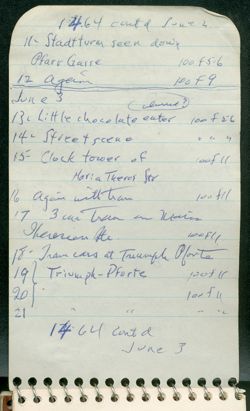 1464 cont'd June 2
11- Stadtturm seen down
Pfarr Gasse 100 f 5.6
12 Again 100 f 9
June 3
13- Little chocolate eater 100 f 5.6
14- Street scene " " "
15- Clock tower of 100 f 11
Maria Theres Str
16 Again with tram 100 f 11
17 3 car tram on Maria
Theresien Str 100 f 11
18- Tram cars at Triumph Pforte
19 Triumph-Pforte 100 f 11
20 " 100 f 11
21 " " " "
1464 cont'd
June 3